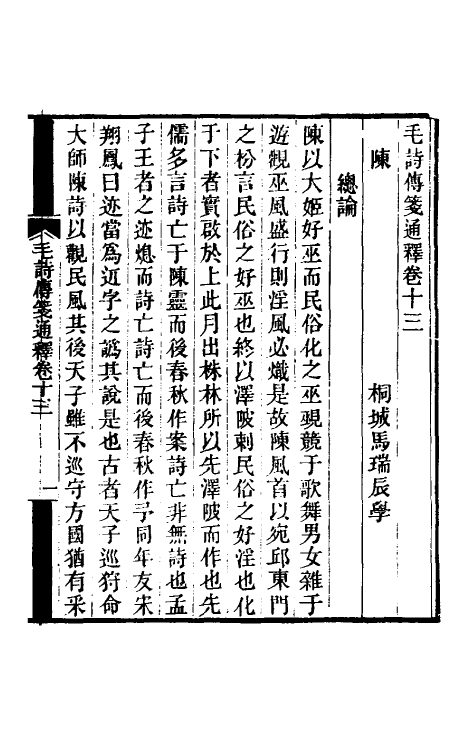 毛詩傳箋通釋卷十三
桐城馬瑞辰學
陳
總論
陳以大姬好巫而民俗化之巫覡競于歌舞男女雜于
遊觀巫風盛行則淫風必熾是故陳風首以宛邱東門
之枌言民俗之好巫也終以澤陂刺民俗之好淫也化
于下者實啟於上此月出株林所以先澤陂而作也先
儒多言詩亡于陳靈而後春秋作案詩亡非無詩也孟
子王者之迹熄而詩亡詩亡而後春秋作予同年友宋
翔鳳曰迹當爲𨒪字之譌其說是也古者天子巡狩命
大師陳詩以觀民風其後天子雖不巡守方國猶有采
毛詩傳箋通釋卷十三
一